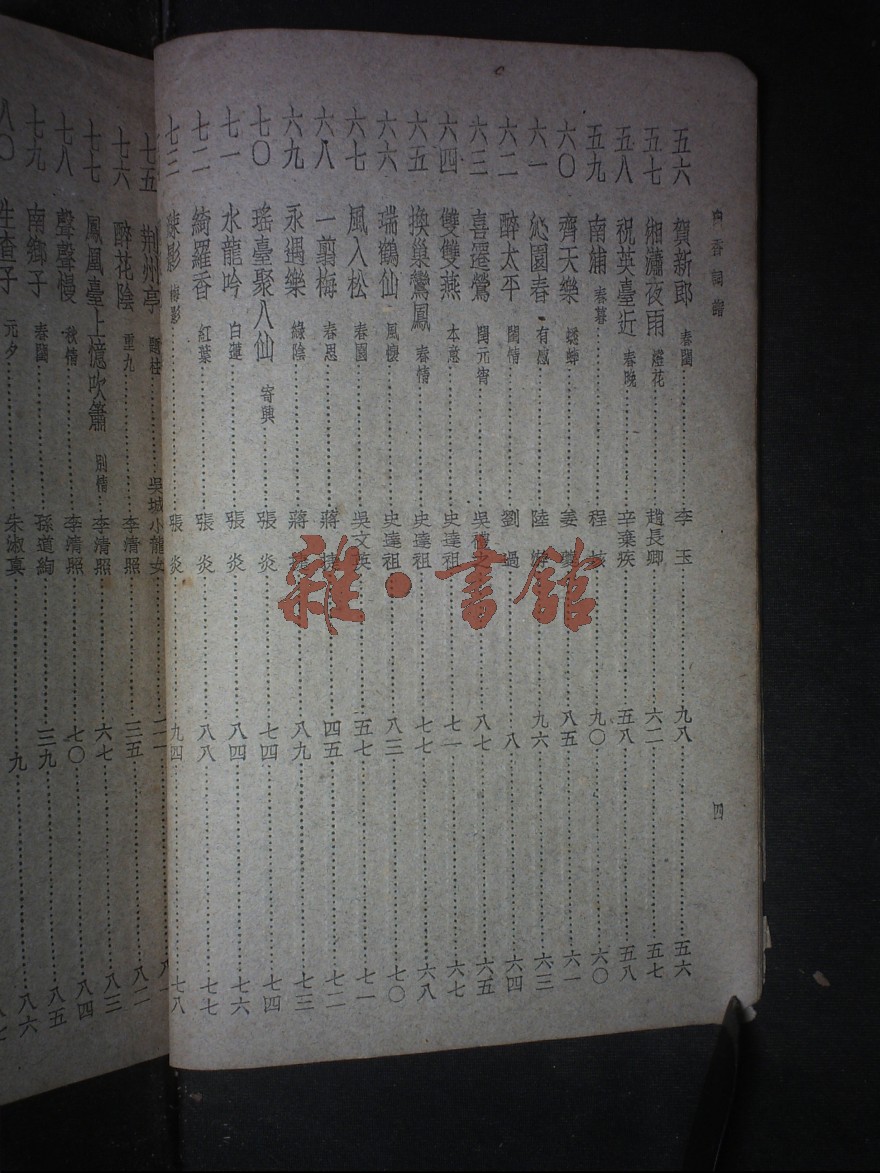 白香詞譜
四
五六 賀新郎 春閨 李玉 九八 五六
五七 湘瀟夜雨 燈花 趙長卿 六二 五七
五八 祝英臺近 春晚 辛棄疾 五八 五八
五九 南浦 春暮 程垓 九〇 六〇
六〇 齊天樂 蟋蟀 姜夔 八五 六一
六一 沁園春 有感 陸游 九六 六三
六二 醉太平 閨情 劉過 八 六四
六三 喜遷鶯 閏元宵 吳禮之 八七 六五
六四 雙雙燕 本意 史達祖 七一 六七
六五 換巢鸞鳳 春情 史達祖 七七 六八
六六 瑞鶴仙 風懷 史達祖 八三 七〇
六七 風入松 春園 吳文英 五七 七一
六八 一翦梅 春思 蔣捷 四五 七二
六九 永遇樂 綠陰 蔣捷 八九 七三
七〇 瑤臺聚八仙 寄興 張炎 七四 七四
七一 水龍吟 白蓮 張炎 八四 七六
七二 綺羅香 紅葉 張炎 八八 七七
七三 疎影 梅影 張炎 九四 七八
七五 荆州亭 題柱 吳城小龍女
七六 醉花陰 重九 李清照 三五 八二
七七 鳳凰臺上憶吹簫 別情 李清照 六七 八三
七八 聲聲慢 秋情 李清照 七〇 八四
七九 南鄉子 春閨 孫道絢 三九 八五
八〇 生查子 元夕 朱淑眞 九 八六
雜·書館